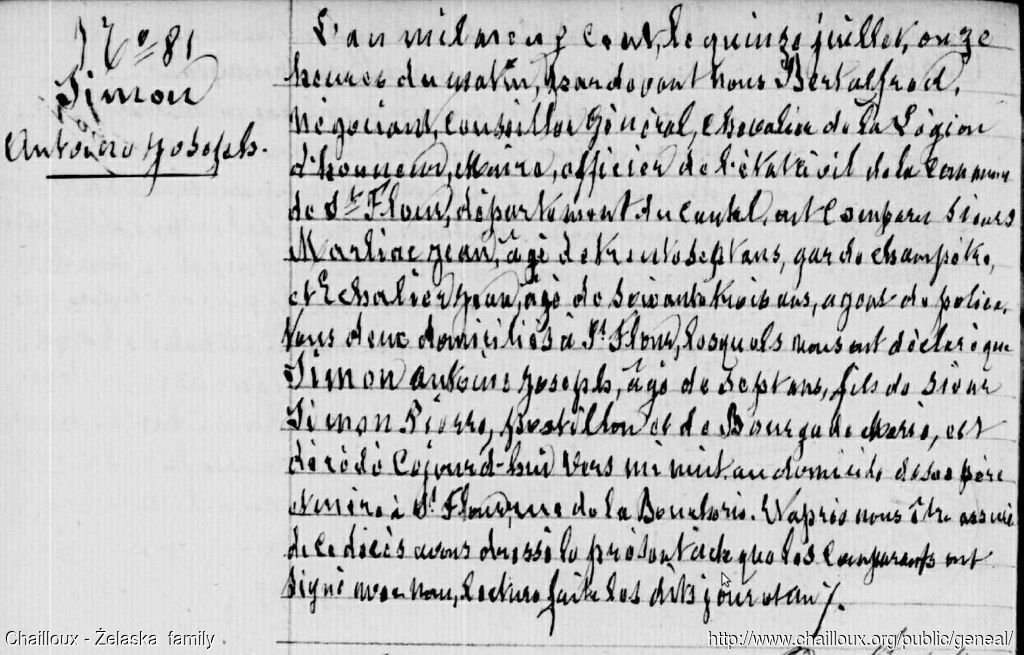 No 81
Simon
Antoine Joseph.
L'an mil neuf cent, le quinze juillet, onze
heures du matin, pardevant nous Bert alfred,
Négociant, Conseiller Général, Chevalier de la Légion
d'honneur, Maire, officier de l'état civil de la Commune
de St Flour, département du Cantal, ont comparu sieurs
Marliac Jean, âgé de trente sept ans, garde champêtre,
et Echalier Jean, âgé de soixante trois ans, agent de police,
tous deux domiciliés à St Flour, lesquels nous ont déclaré que
Simon Antoine Joseph, âgé de sept ans, fils de sieur
Simon Pierre, postillon et de Bourgade Marie, est
décédé cejourd-hui vers minuit au domicile de ses père
et mère à St Flour, rue de la Boucherie. Et après nous être assuré
de ce décès avons dressé le présent acte que les comparants ont
signé avec nous, lecture faite les dits jour et an.
Chailloux - Żelaska family
http://www.chailloux.org/public/geneal/